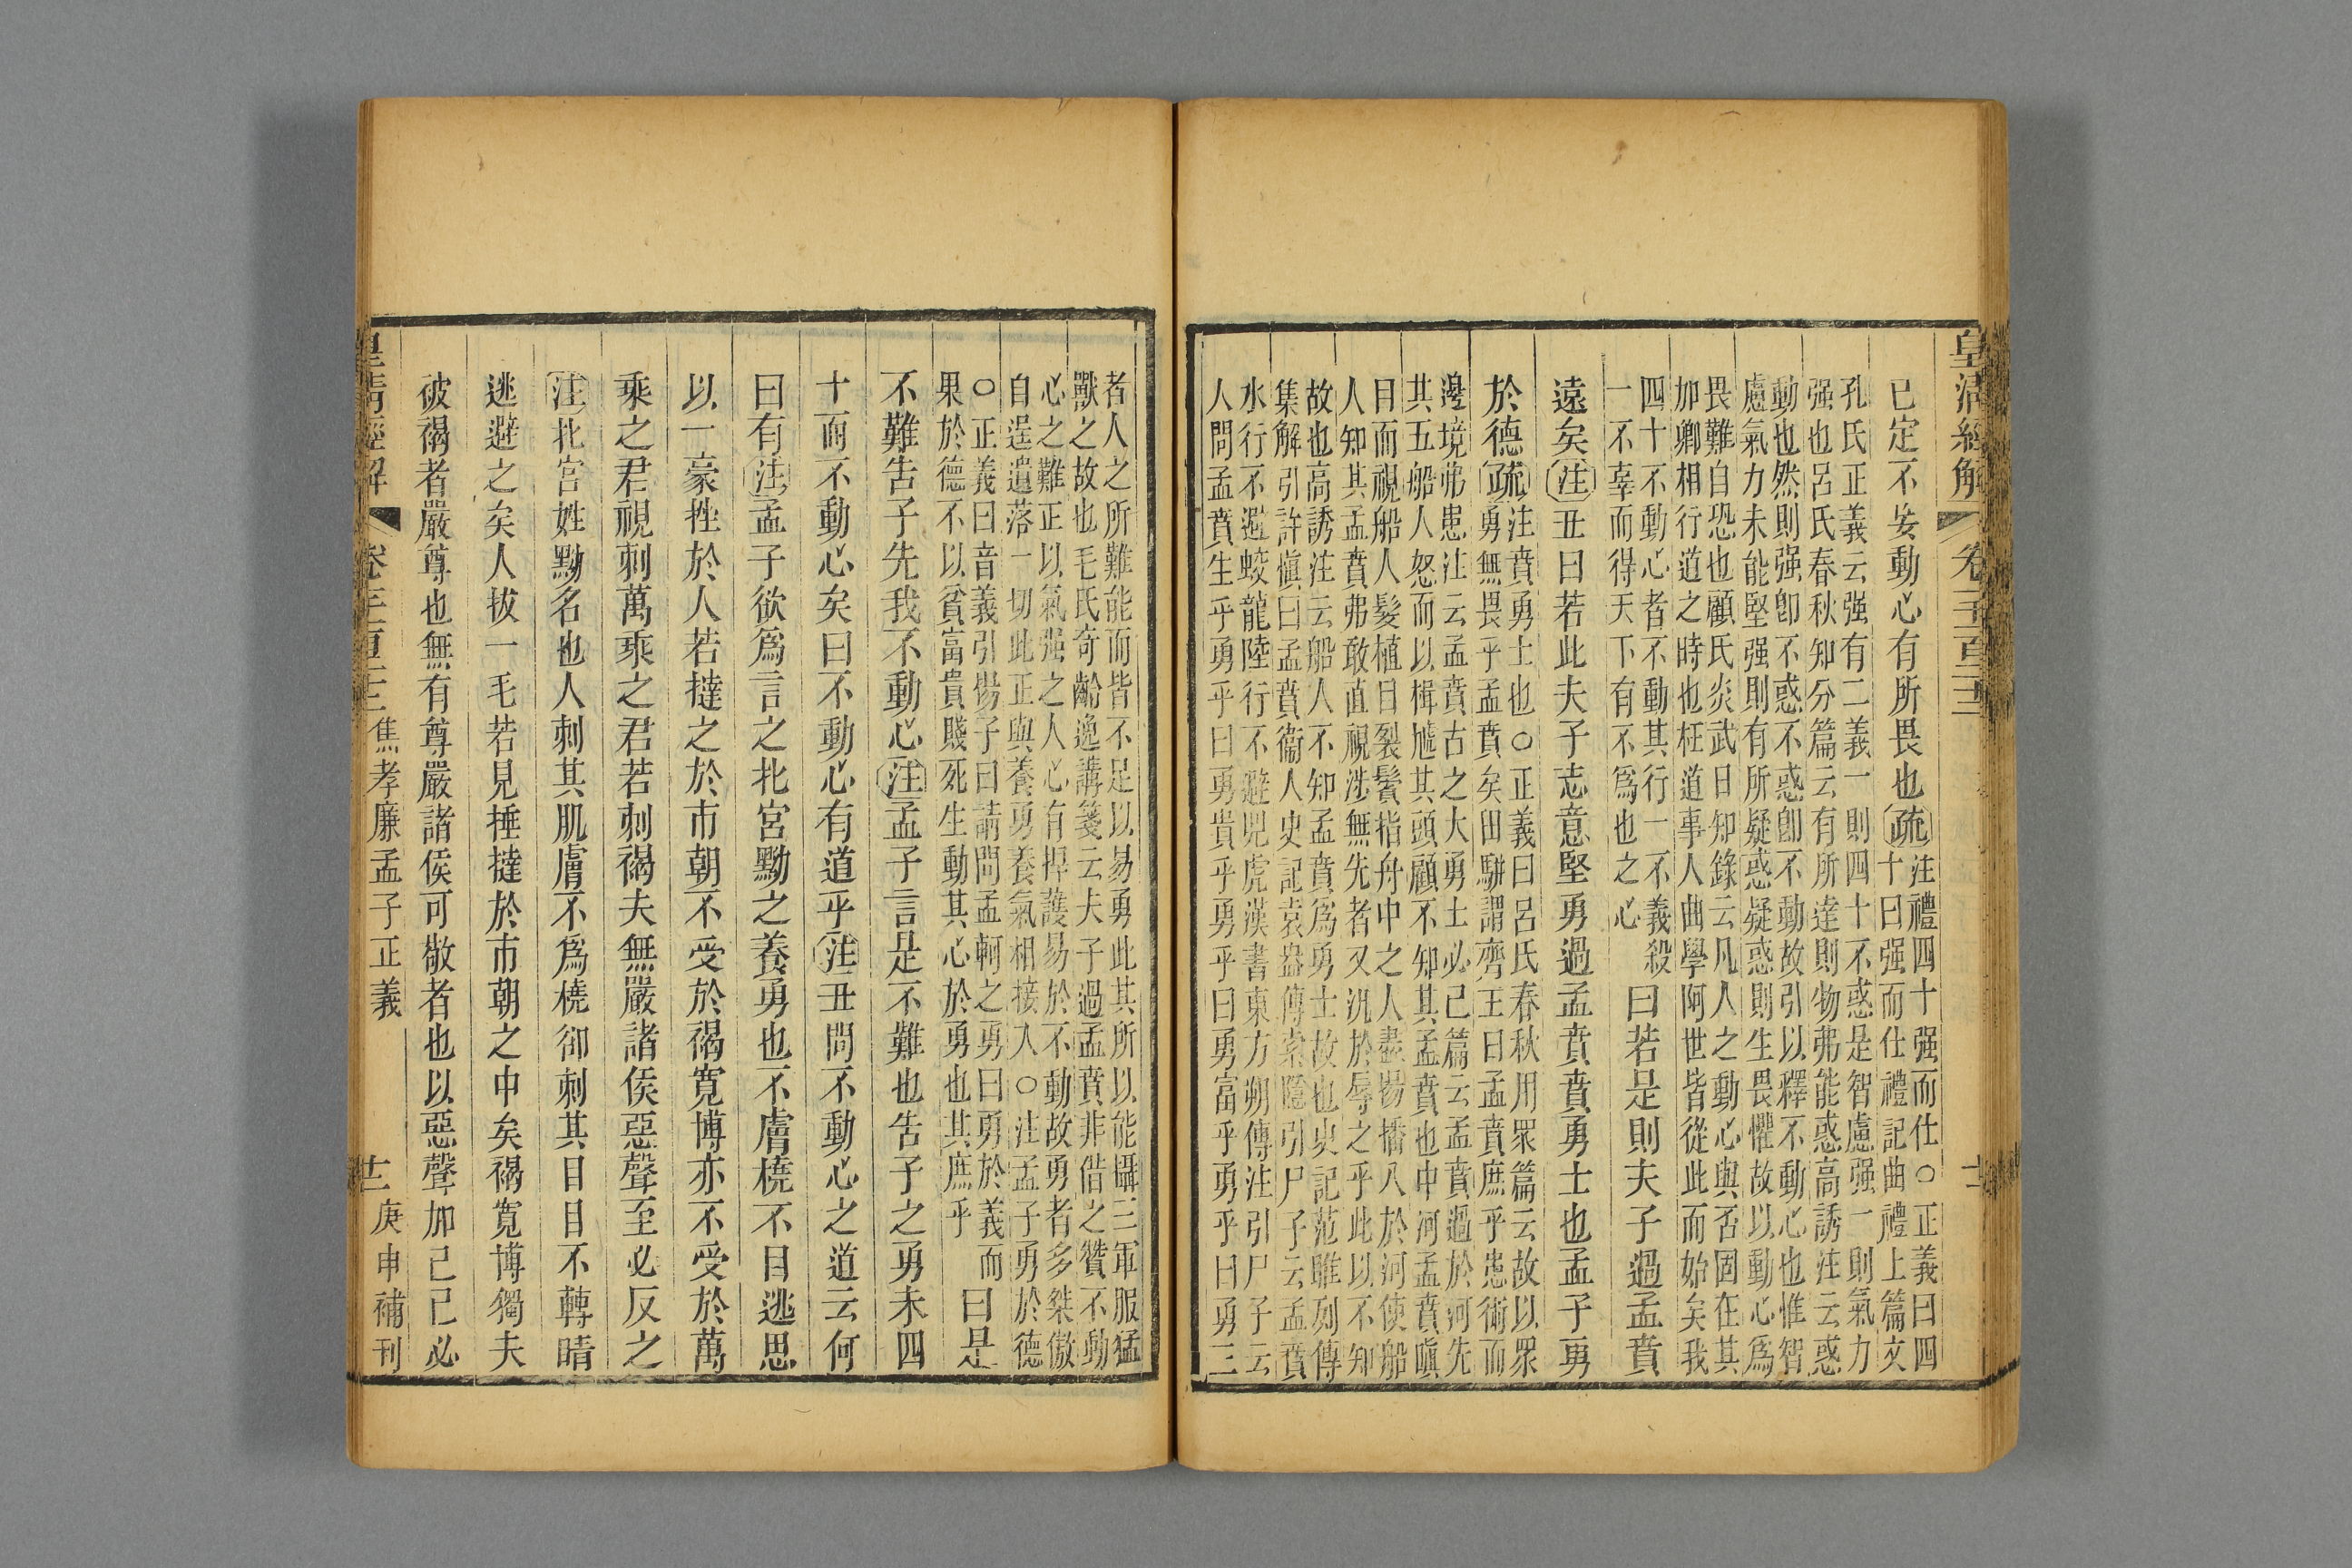 皇清經解
已定不妄動心有所畏也疏
注禮四十强而仕○正義曰四
十曰强而仕禮記曲禮上篇文
孔氏正義云强有二義一則四十不惑是智慮强一則氣力
强也呂氏春秋知分篇云有所達則物弗能惑高誘注云惑
動也然則强卽不惑不惑卽不動故引以釋不動心也惟智
慮氣力未能堅强則有所疑惑疑惑則生畏懼故以動心爲
畏難自恐也顧氏炎武日知錄云凡人之動心與否固在其
加卿相行道之時也枉道事人曲學阿世皆從此而始矣我
四十不動心者不動其行一不義殺
一不辜而得天下有不爲也之心
曰若是則夫子過孟賁
遠矣注丑曰若此夫子志意堅勇過孟賁賁勇士也孟子勇
於德疏
注賁勇士也○正義曰呂氏春秋用眾篇云故以眾
勇無畏乎孟賁矣田駢謂齊王曰孟賁庶乎患術而
邊境弗患注云孟賁古之大勇士必己篇云孟賁過於河先
其五船人怒而以楫虓其頭顧不知其孟賁也中河孟賁瞋
目而視船人髮植目裂鬢指舟中之人盡揚播入於河使船
人知其孟賁弗敢直視涉無先者又況於辱之乎此以不知
故也高誘注云船人不知孟賁爲勇士故也史記范雎列傳
集解引許愼曰孟賁衞人史記袁盎傳索隱引尸子云孟賁
水行不避蛟龍陸行不避兕虎漢書東方朔傳注引尸子云
人問孟賁生乎勇乎曰勇貴乎勇乎曰勇富乎勇乎曰勇三
者人之所難能而皆不足以易勇此其所以能懾三軍服猛
獸之故也毛氏奇齡逸講箋云夫子過孟賁非借之贊不動
心之難正以氣强之人心有捍護易於不動故勇者多桀傲
自逞遺落一切此正與養勇養氣相接入○注孟子勇於德
○正義曰音義引揚子曰請問孟軻之勇曰勇於義而
果於德不以貧富貴賤死生動其心於勇也其庶乎
曰是
不難告子先我不動心注孟子言是不難也告子之勇未四
十而不動心矣曰不動心有道乎注丑問不動心之道云何
曰有注孟子欲爲言之北宮黝之養勇也不膚橈不目逃思
以一豪挫於人若撻之於市朝不受於褐寬博亦不受於萬
乘之君視刺萬乘之君若刺褐夫無嚴諸侯惡聲至必反之
注北宮姓黝名也人刺其肌膚不爲橈卻刺其目目不轉睛
逃避之矣人拔一毛若見捶撻於市朝之中矣褐寬博獨夫
被褐者嚴尊也無有尊嚴諸侯可敬者也以惡聲加己己必
皇清經解
焦孝廉孟子正義
庚申補刊